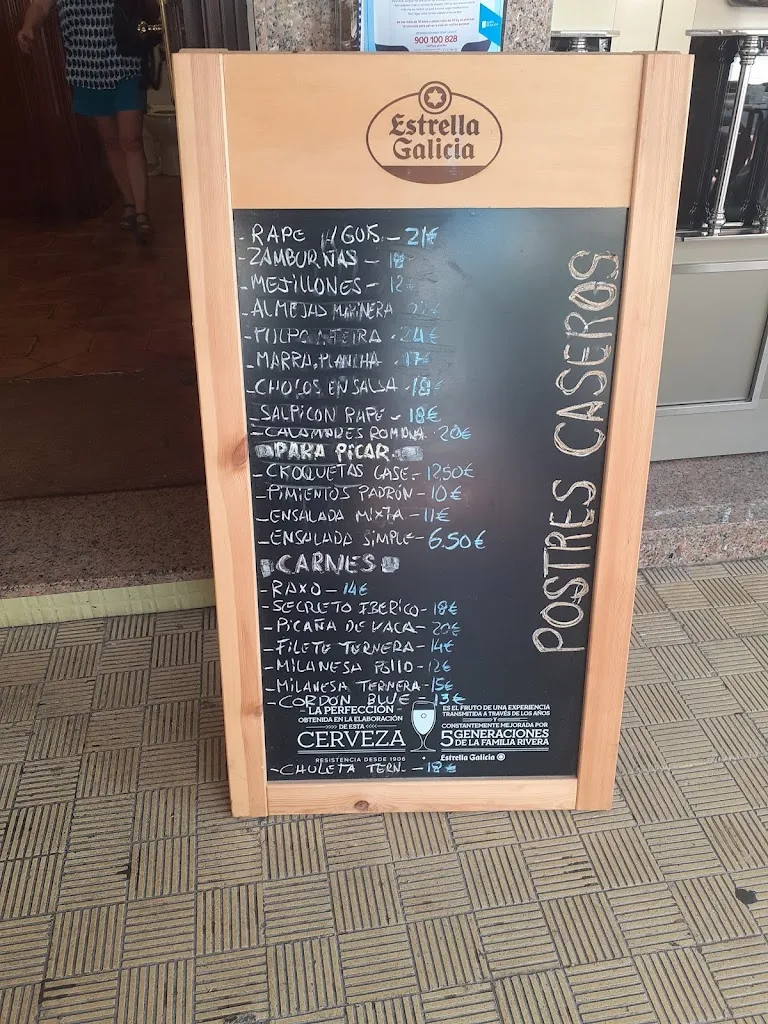 900 100 828
Estrella
Galicia
- RAPE - 21€
- ZAMBURIÑAS - 18
- MEJILLONES - 12
- ALMEJAS MARINERA
- 24€
- MARRA. PLANCHA - 17€
- CHOCOS EN SALSA - 18
- SALPICON RAPE - 18€
- CALAMARES ROMANA 20€
PARA PICAR
- CROQUETAS CASE - 12,50€
- PIMIENTOS PADRÓN - 10€
- ENSALADA MIXTA - 11€
- ENSALADA SIMPLE - 6.50€
CARNES
- RAXO - 14€
- SECRETO IBERICO - 18€
- PICAÑA DE VACA - 20€
- FILETE TERNERA - 14€
- MILANESA POLLO - 12€
- MILANESA TERNERA - 15€
- CORDON BLUE - 13€
LA PERFECCIÓN
OBTENIDA EN LA ELABORACIÓN
DE ESTA
CERVEZA
RESISTENCIA DESDE 1906
ES EL FRUTO DE UNA EXPERIENCIA
TRANSMITIDA A TRAVÉS DE LOS AÑOS
Y
CONSTANTEMENTE MEJORADA POR
5 GENERACIONES
DE LA FAMILIA RIVERA
Estrella Galicia
- CHULETA TERN. - 18€
POSTRES CASEROS